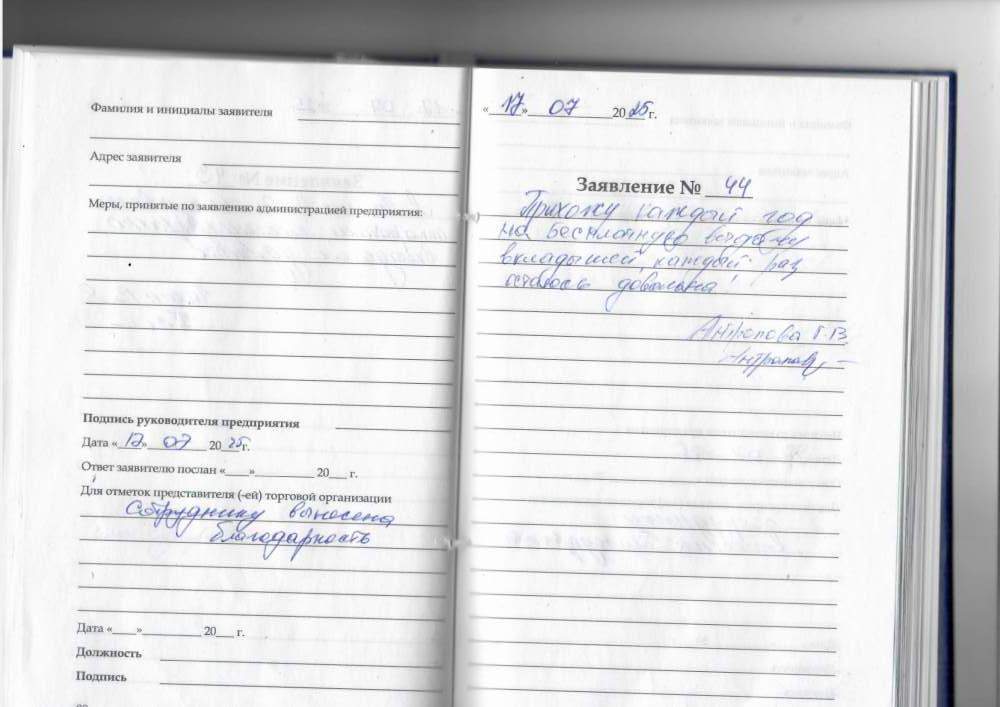 Фамилия и инициалы заявителя
Адрес заявителя
Меры, принятые по заявлению администрацией предприятия:
Подпись руководителя предприятия
Дата «17» 07 2025г.
Ответ заявителю послан «___» 20___ г.
Для отметок представителя (-ей) торговой организации
Сотруднику вынесена
благодарность
Дата «___» 20___ г.
Должность
Подпись
«17» 07 2025г.
Заявление № 44
Прихожу каждый год
на бесплатную
вкладышей, каждый раз
остаюсь довольна!
Антропова Г.В.